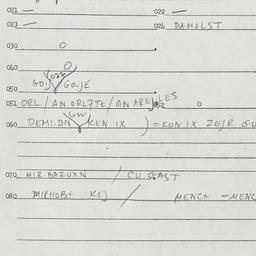 021 —
022 —
023 —
024 DAMOLST
030 O
040 O
022
GO.J GO.JE
050
051 ORL / AN ORLTTE / AN AREJLLES
060 DEMI.DN KEN IX ) = KON IX ZEJR GU
070 MIR BAZUXN / CU GAST
080 MIRHOBT KEJ / MENCT = MENC